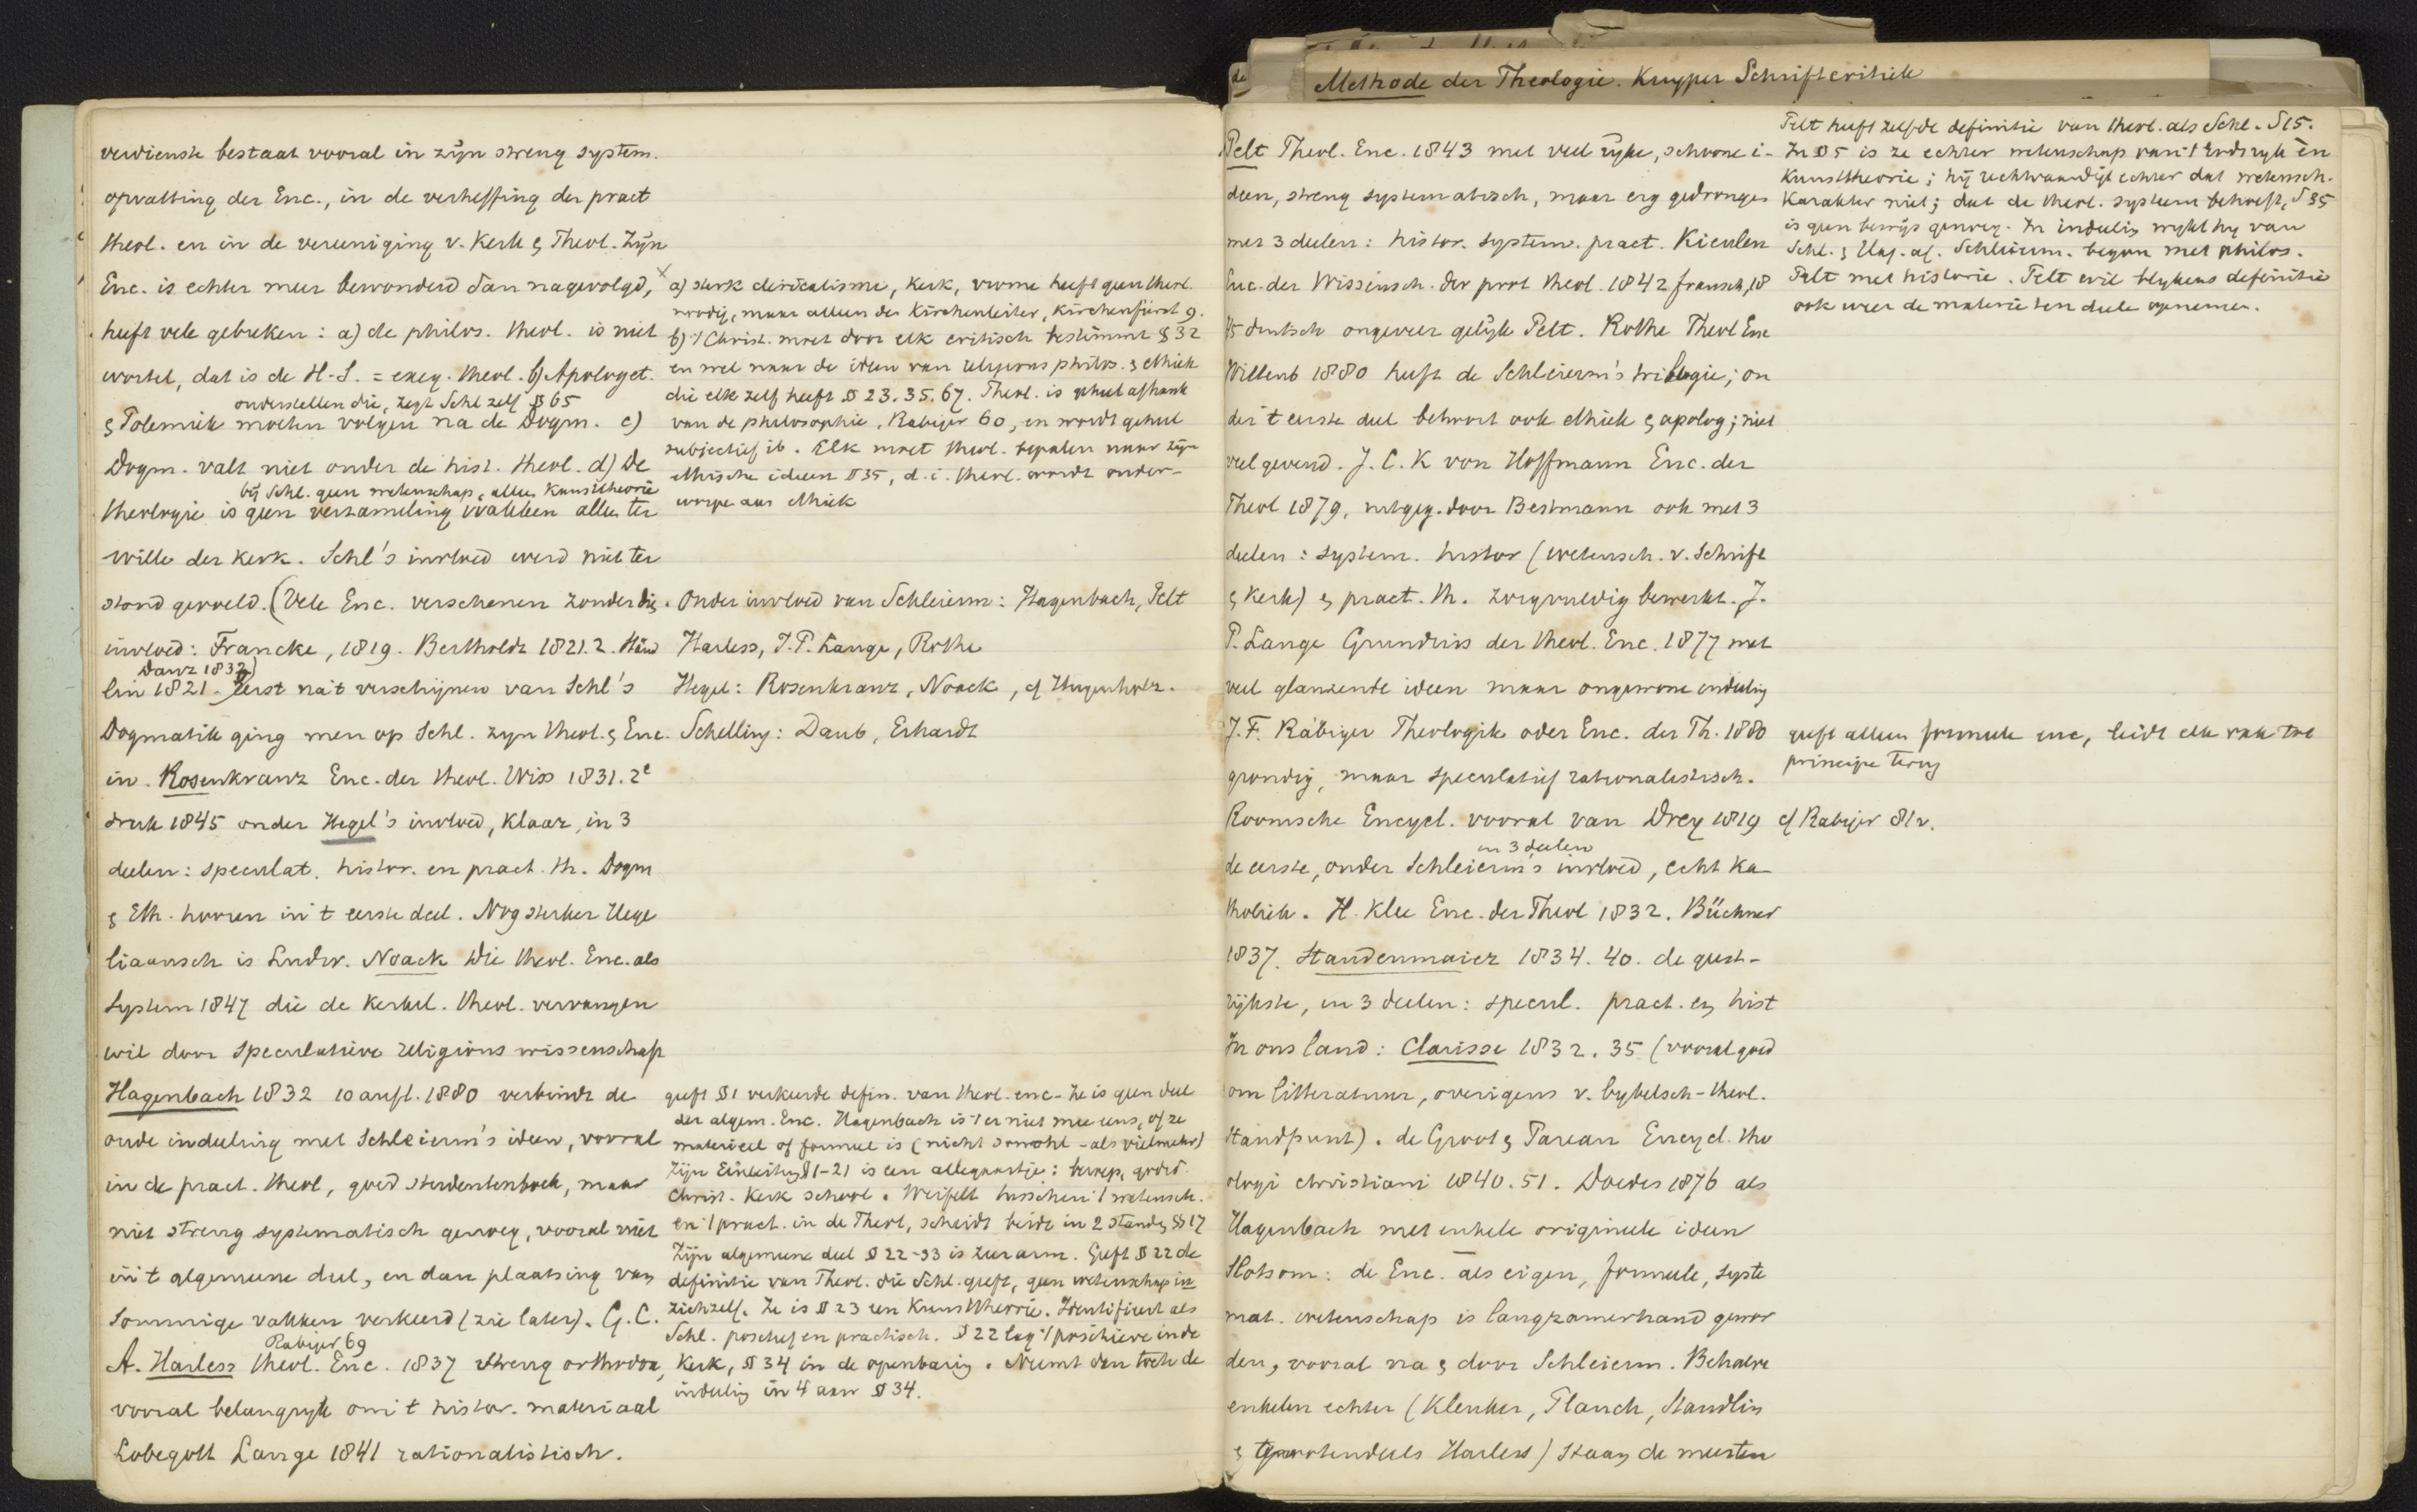 verdienste bestaat vooral in zijn streng system.
opvatting der Enc., in de verheffing der pract
theol. en in de vereeniging v. Kerk & Theol. Zijn
Enc. is echter meer bewonderd dan nagevolgd,
heeft vele gebreken: a) de philos. theol. is niet
wortel, dat is de H.S. = exeg. theol. b) Apologet.
onderstellen die, zegt Schl zelf § 65
& Polemiek moeten volgen na de Dogm. c)
Dogm. valt niet onder de hist. theol. d) De
bij Schl. geen wetenschap, alleen Kunsttheorie
theologie is geen verzameling vakken alleen ter
wille der kerk. Schl's invloed werd niet ter
stond gevoeld. (Vele Enc. verschenen zonder die
invloed: Francke, 1819. Bertholdt 1821.2. Stäud
Danz 1832)
lin 1821. Eerst na 't verschijnen van Schl's
Dogmatik ging men op Schl. zijn theol. & Enc.
in. Rosenkranz Enc. der theol. Wiss 1831. 2e
druk 1845 onder Hegel's invloed, klaar, in 3
deelen: speculat. histor. en pract. th. Dogm
& Eth. hooren in 't eerste deel. Nog sterker Hege
liaansch is Ludw. Noack Die theol. Enc. als
System 1847 die de kerkel. theol. vervangen
wil door speculatieve religions wissenschaft
Hagenbach 1832 10 aufl. 1880 verbindt de
oude indeeling met Schleierm's ideen, vooral
in de pract. theol, goed studentenboek, maar
niet streng systematisch genoeg, vooral niet
in 't algemeene deel, en dan plaatsing van
sommige vakken verkeerd (zie later). G. C.
Rabiger 69
A. Harless theol. Enc. 1837 streng orthodox,
vooral belangrijk om 't histor. materiaal
Lobegott Lange 1841 rationalistisch.
a) sterk clericalisme, kerk, vrome heeft geen theol.
noodig, maar alleen der Kirchenleiter, Kirchenfürst 9.
b) 't Christ. moet door elk critisch bestimmt § 32
en wel naar de ideen van religions philos. & ethiek
die elk zelf heeft § 23. 35. 67. Theol. is geheel afhank
van de philosophie, Rabiger 60, en wordt geheel
subjectief ib. Elk moet theol. bepalen naar zijn
ethische ideen § 35, d.i. theol. wordt onder-
worpen aan ethiek
Onder invloed van Schleierm: Hagenbach, Pelt
Harless, J.P. Lange, Rothe
Hegel: Rosenkranz, Noack, cf Hugenholtz.
Schelling: Daub, Erhardt
geeft § 1 verkeerde defin. van theol. enc. Ze is geen deel
der algem. Enc. Hagenbach is 't er niet mee eens, of ze
materieel of formeel is (nicht sowohl - als vielmehr)
Zijn Einleitung § 1-21 is een allegaartje: beroep, godsd.
Christ. Kerk school. Weifelt tusschen 't wetensch.
en 't pract. in de Theol, scheidt beide in 2 standen § 17
Zijn algemeene deel § 22-33 is zeer arm. Geeft § 22 de
definitie van Theol. die Schl. geeft, geen wetenschap in
zichzelf. Ze is § 23 een Kunsttheorie. Identifieert als
Schl. positief en practisch. § 22 lag 't positieve in de
Kerk, § 34 in de openbaring. Neemt dan toch de
indeeling in 4 aan § 34.
de
Methode der Theologie. Kuyper Schriftcritiek
Pelt Theol. Enc. 1843 met veel rijke, schoone i-
deen, streng systematisch, maar erg gedrongen
met 3 deelen: histor. system. pract. Kienlen
Enc. der Wissensch. der prot theol. 1842 fransch, 18
45 duitsch ongeveer gelijk Pelt. Rothe Theol Enc
Wittenb 1880 heeft de Schleierm's trilogie; on
der 't eerste deel behoort ook ethiek & apolog; niet
veel gevend. J. C. K von Hoffmann Enc. der
Theol 1879, uitgeg. door Bestmann ook met 3
deelen: system. histor (wetensch. v. Schrift
& Kerk) & pract. th. zorgvuldig bewerkt. J.
P. Lange Grundriss der theol. Enc. 1877 met
veel glanzende ideen maar ongewone indeeling
J. F. Räbiger Theologik oder Enc. der Th. 1880
grondig, maar speculatief rationalistisch.
Roomsche Encycl. vooral van Drey 1819
in 3 deelen
de eerste, onder Schleierm's invloed, echt ka-
tholiek. H. Klee Enc. der Theol 1832. Büchner
1837. Staudenmaier 1834. 40. de geest-
rijkste, in 3 deelen: specul. pract. en hist
In ons land: Clarisse 1832. 35 (vooral goed
om litteratuur, overigens v. bijbelsch-theol.
standpunt). de Groot & Pareau Encycl. the
ologi christiani 1840. 51. Doedes 1876 als
Hagenbach met enkele origineele ideen
Slotsom: de Enc. als eigen, formeele, syste
mat. wetenschap is langzamerhand gewor
den, vooral na & door Schleierm. Behalve
enkelen echter (Kleuker, Planck, Staudlin
& grootendeels Harless) staan de meesten
Pelt heeft zelfde definitie van theol. als Schl. § 15.
In § 5 is ze echter wetenschap van 't Godsrijk en
Kunsttheorie; hij rechtvaardigt echter dat wetensch.
Karakter niet; dat de theol. systeem behoeft, § 35
is geen bewijs genoeg. In indeeling wijkt hij van
Schl. & Hag. af. Schleierm. begon met philos.
Pelt met historie. Pelt wil blijkens definitie
ook weer de materie ten deele opnemen.
geeft alleen formeele enc, leidt elk vak tot
principe terug
cf Rabiger 81v.